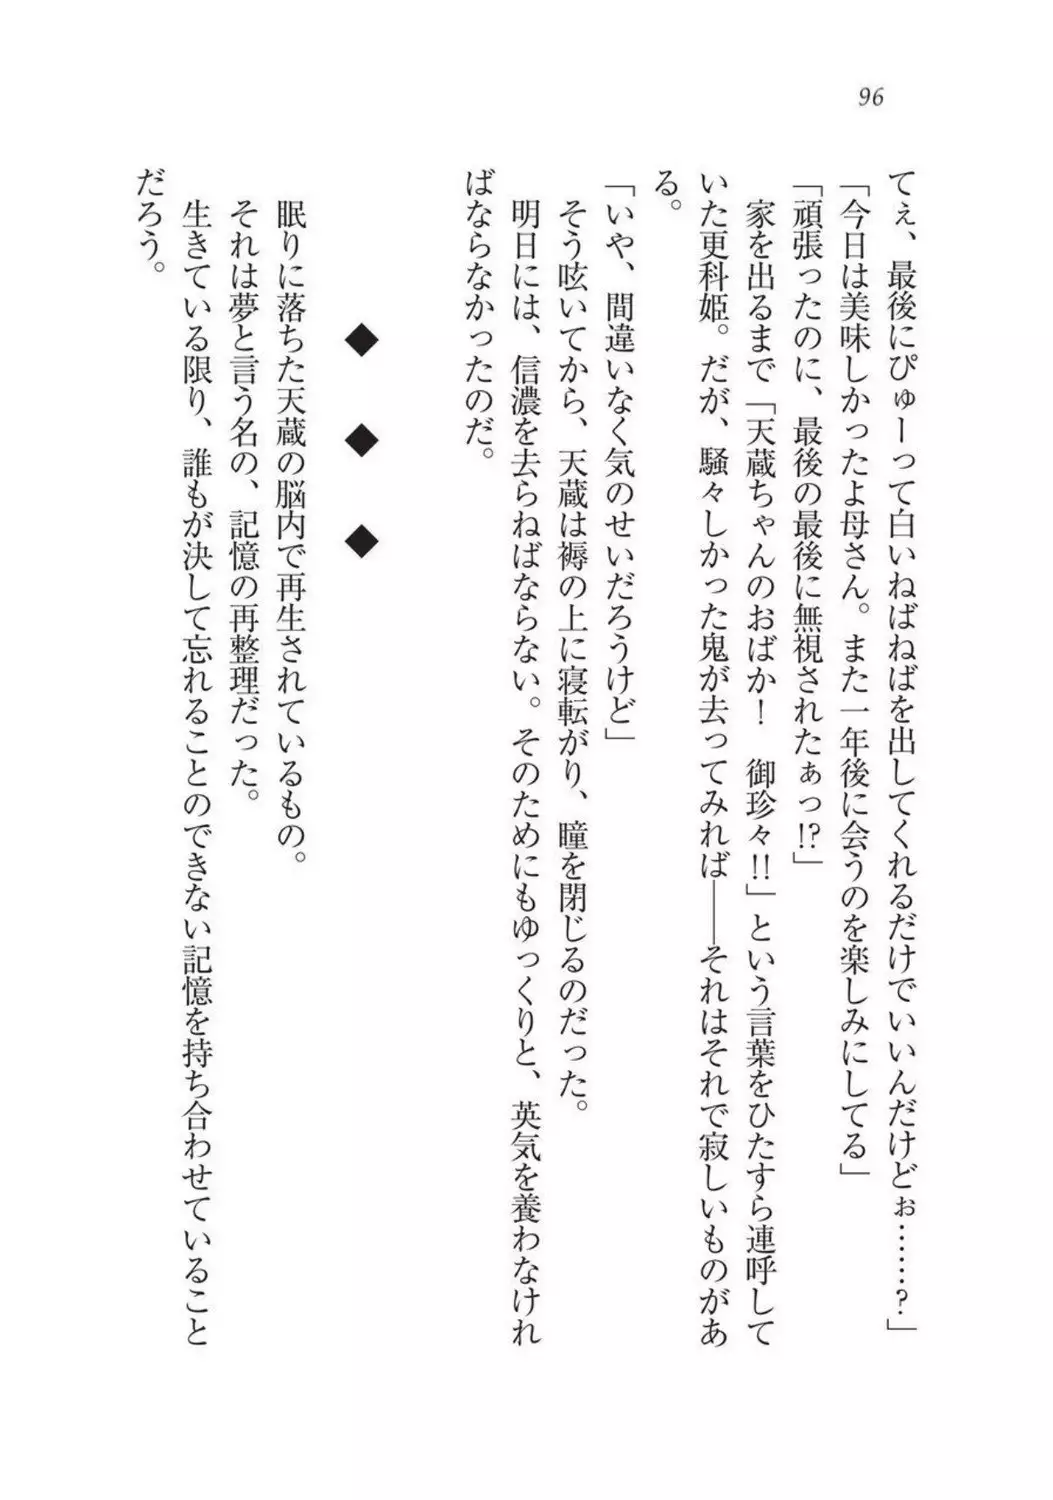 96
てぇ、最後にぴゅーって白いねばねばを出してくれるだけでいいんだけどぉ……?」
「今日は美味しかったよ母さん。また一年後に会うのを楽しみにしてる」
「頑張ったのに、最後の最後に無視されたぁっ!?」
家を出るまで「天蔵ちゃんのおばか! 御珍々!!」という言葉をひたすら連呼して
いた更科姫。だが、騒々しかった鬼が去ってみれば――それはそれで寂しいものがあ
る。
「いや、間違いなく気のせいだろうけど」
そう呟いてから、天蔵は褥の上に寝転がり、瞳を閉じるのだった。
明日には、信濃を去らねばならない。そのためにもゆっくりと、英気を養わなけれ
ばならなかったのだ。
◆ ◆ ◆
眠りに落ちた天蔵の脳内で再生されているもの。
それは夢と言う名の、記憶の再整理だった。
生きている限り、誰もが決して忘れることのできない記憶を持ち合わせていること
だろう。